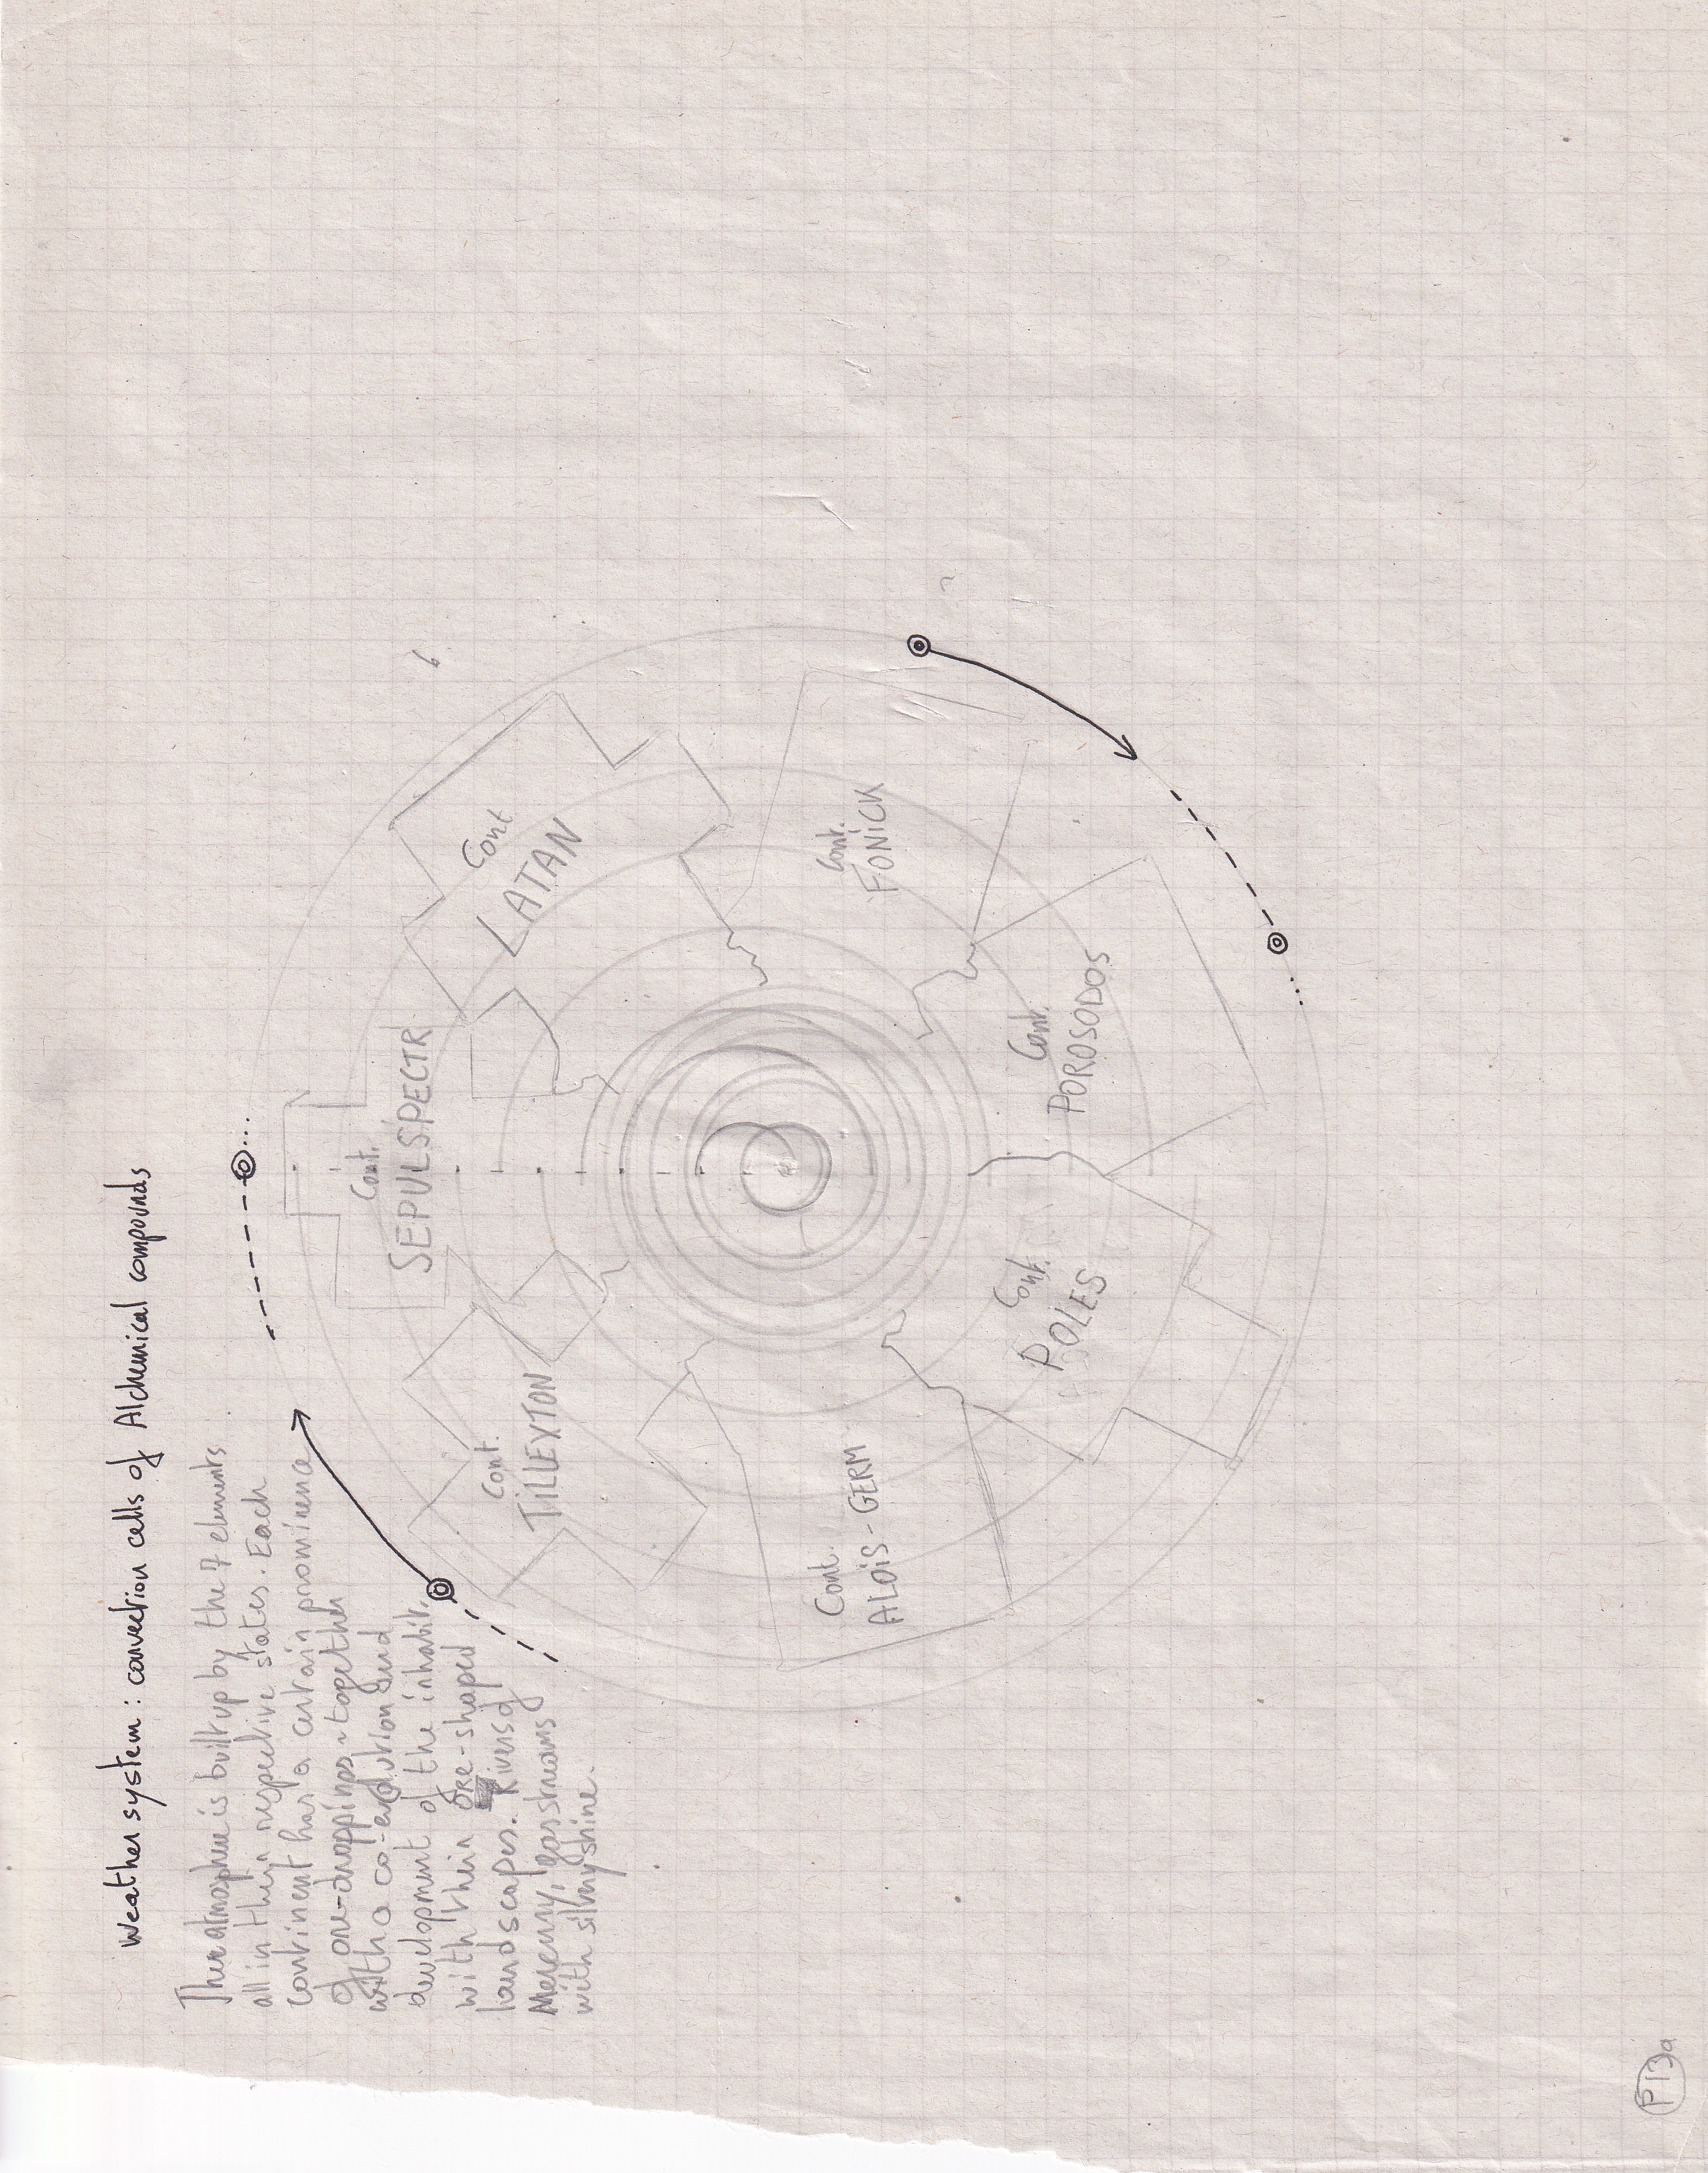 Weather system: convection cells of Alchemical compounds
Their atmosphere is built up by the 7 elements
all in their respective states. Each
continent has a certain prominence
of ore-droppings ~ together
with a co-evolution and
development of the inhabit.
with their ore-shaped
landscapes. Rivers of
Mercury, gas streams
with silvery shine.
6
Cont.
SEPULSPECTR
Cont
LATAN
Cont.
TILLEXTON
Cont.
FONICK
Cont.
ALOIS-GERM
Cont.
POROSODOS
Cont.
POLES
P13a